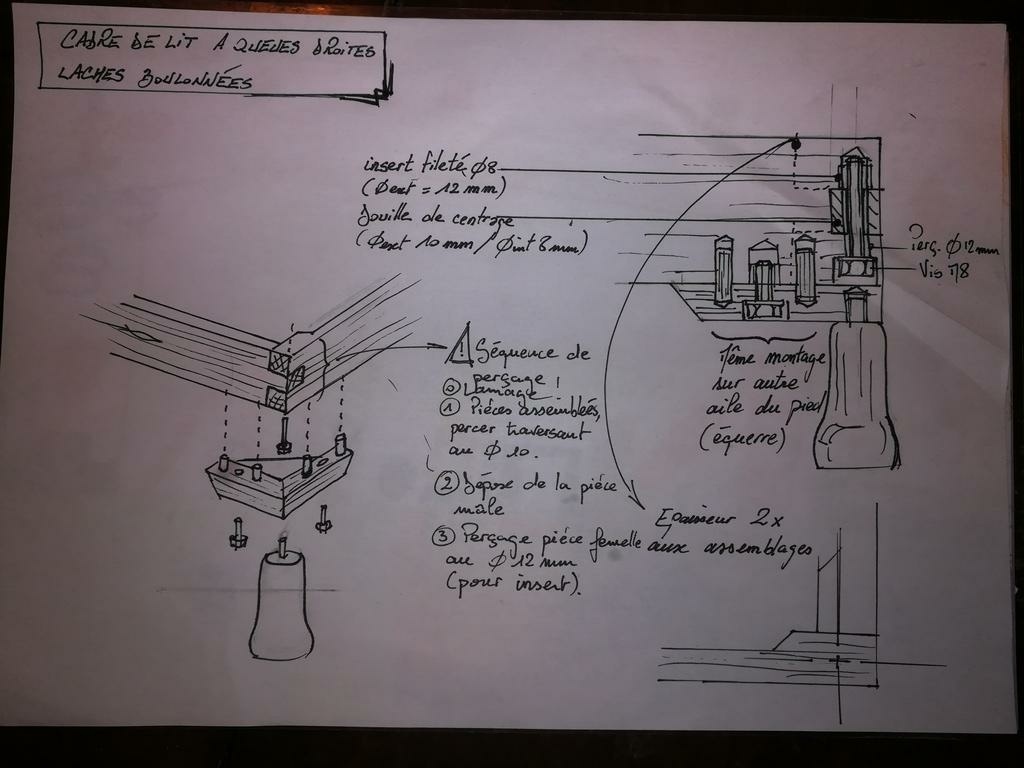 CADRE DE LIT A QUEUES DROITES
LACHES BOULONNÉES
insert fileté Ø8
(Øext = 12 mm)
Douille de centrage
(Øext 10 mm / Øint 8 mm)
Perç. Ø 12 mm
Vis M8
! Séquence de
perçage !
⓪ Lamage
① Pièces assemblées,
percer traversant
au Ø 10.
② Dépose de la pièce
mâle
③ Perçage pièce femelle
au Ø 12 mm
(pour insert).
même montage
sur autre
aile du pied
(équerre)
Epaisseur 2x
aux assemblages